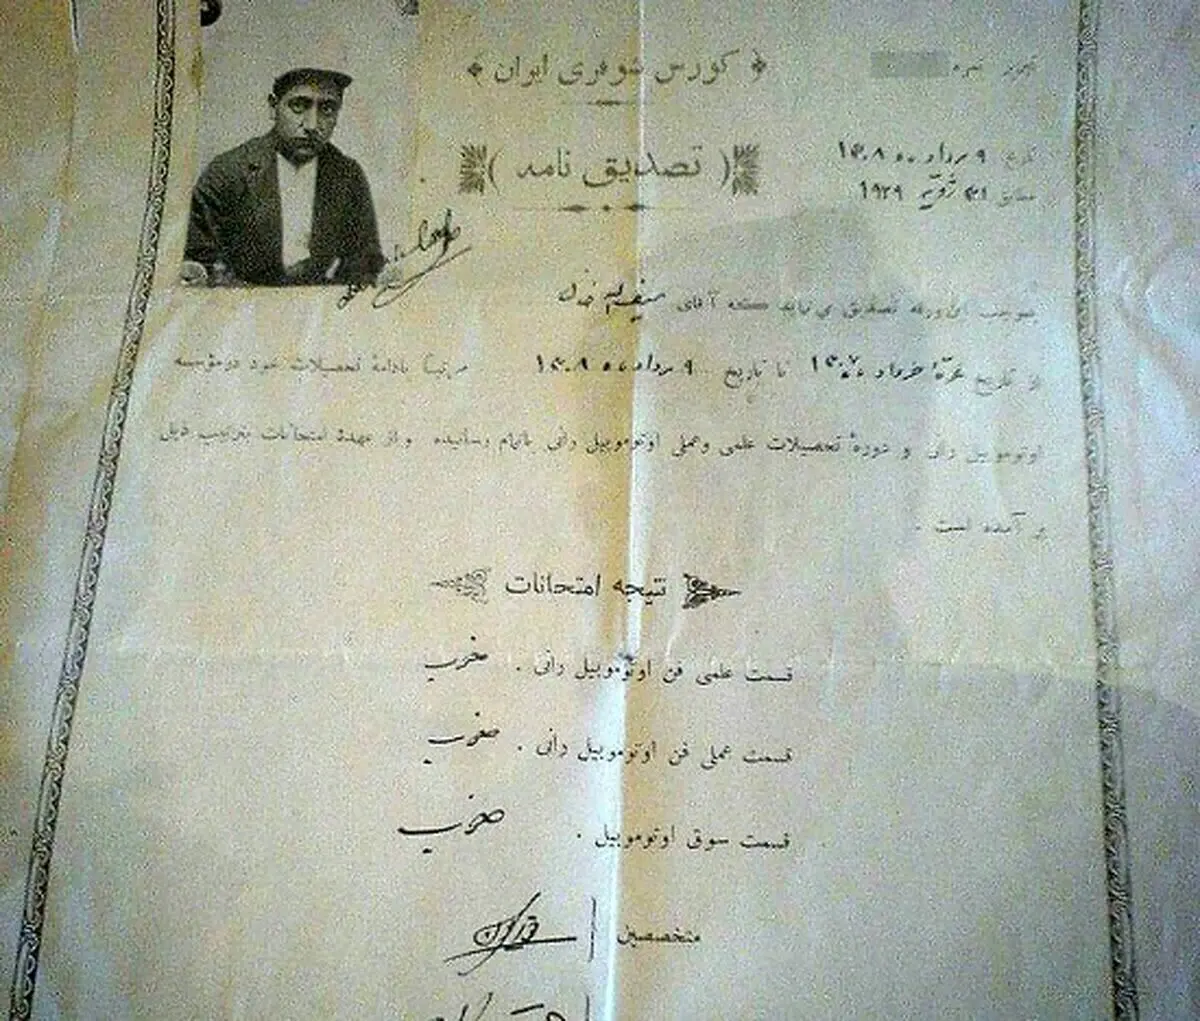 نمره
کورس شوفری ایران
( تصدیق نامه )
تاریخ ۹ مرداد ماه ۱۳۰۸
مطابق ۳۱ ژویه ۱۹۲۹
بموجب این ورقه تصدیق می نماید که آقای خان
از تاریخ غرّهٔ خرداد ماه ۱۳۰۷ تا تاریخ ۹ مرداد ماه ۱۳۰۸ مرتباً بادامهٔ تحصیلات خود در مؤسسه
اوتوموبیل رانی و دورهٔ تحصیلات علمی وعملی اوتوموبیل رانی باتمام رسانیده و از عهدهٔ امتحانات بترتیب ذیل
بر آمده است .
نتیجه امتحانات
قسمت علمی فن اوتوموبیل رانی . خوب
قسمت عملی فن اوتوموبیل رانی . خوب
قسمت سوق اوتوموبیل . خوب
متخصصین